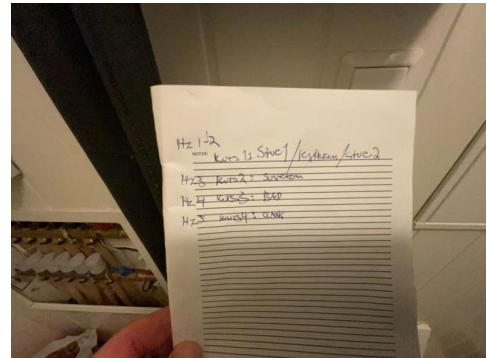 Hz 1-2
NOTES Kurs 1: Stue 1 / Kjøkken / Stue 2
Hz3 Kurs2: Soverom
Hz4 Kurs3: BAD
Hz5 Kurs4: